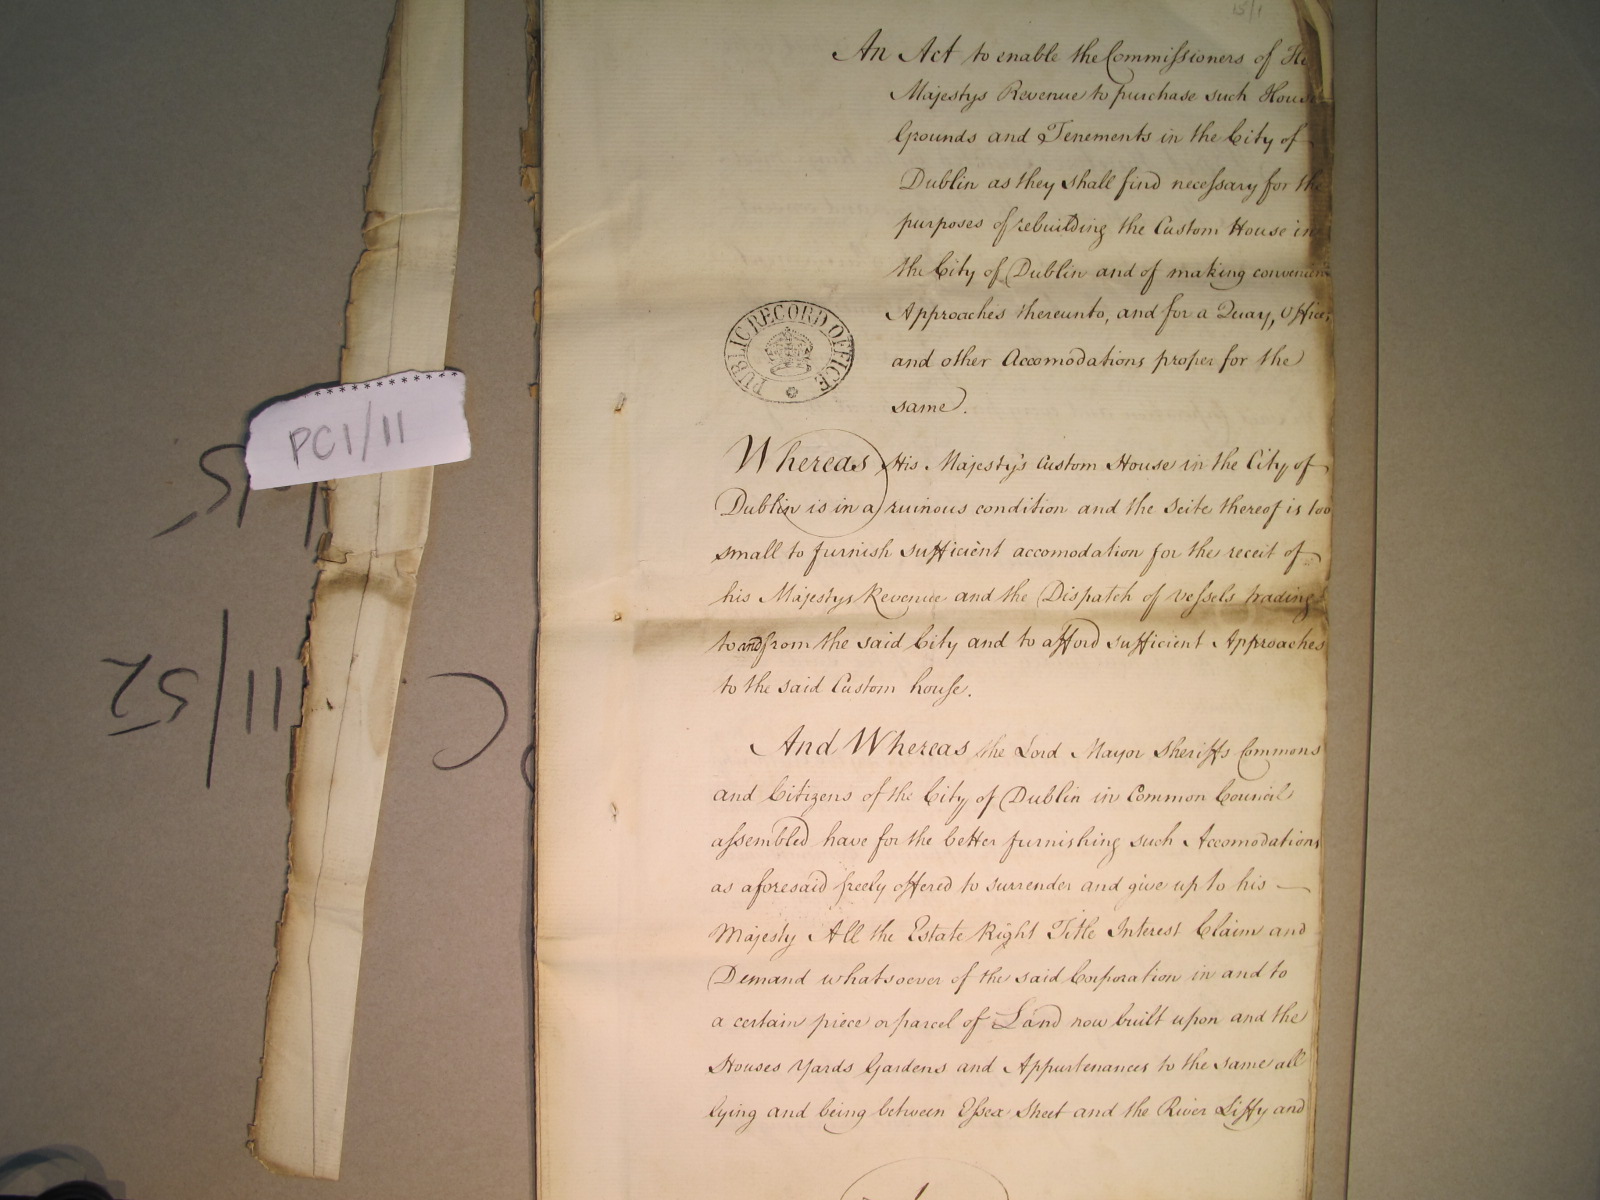 15/1
An Act to enable the Commissioners of
Majestys Revenue to purchase such
Grounds and Tenements in the City of
Dublin as they shall find necessary for the
purposes of rebuilding the Custom House in
the City of Dublin and of making convenien
Approaches thereunto, and for a Quay, Offices
and other Accomodations proper for the
same.
PUBLIC RECORD OFFICE
PC1/11
11/52
Whereas His Majesty's Custom House in the City of
Dublin is in a ruinous condition and the Scite thereof is too
small to furnish sufficient accomodation for the receit of
his Majestys Revenue and the Dispatch of vessels trading
to and from the said City and to afford sufficient Approaches
to the said Custom house.
And Whereas the Lord Mayor Sheriffs Commons
and Citizens of the City of Dublin in Common Council
assembled have for the better furnishing such Accomodations
as aforesaid freely offered to surrender and give up to his
Majesty All the Estate Right Title Interest Claim and
Demand whatsoever of the said Corporation in and to
a certain piece or parcel of Land now built upon and the
Houses Yards Gardens and Appurtenances to the same all
lying and being between Essex Street and the River Liffy and